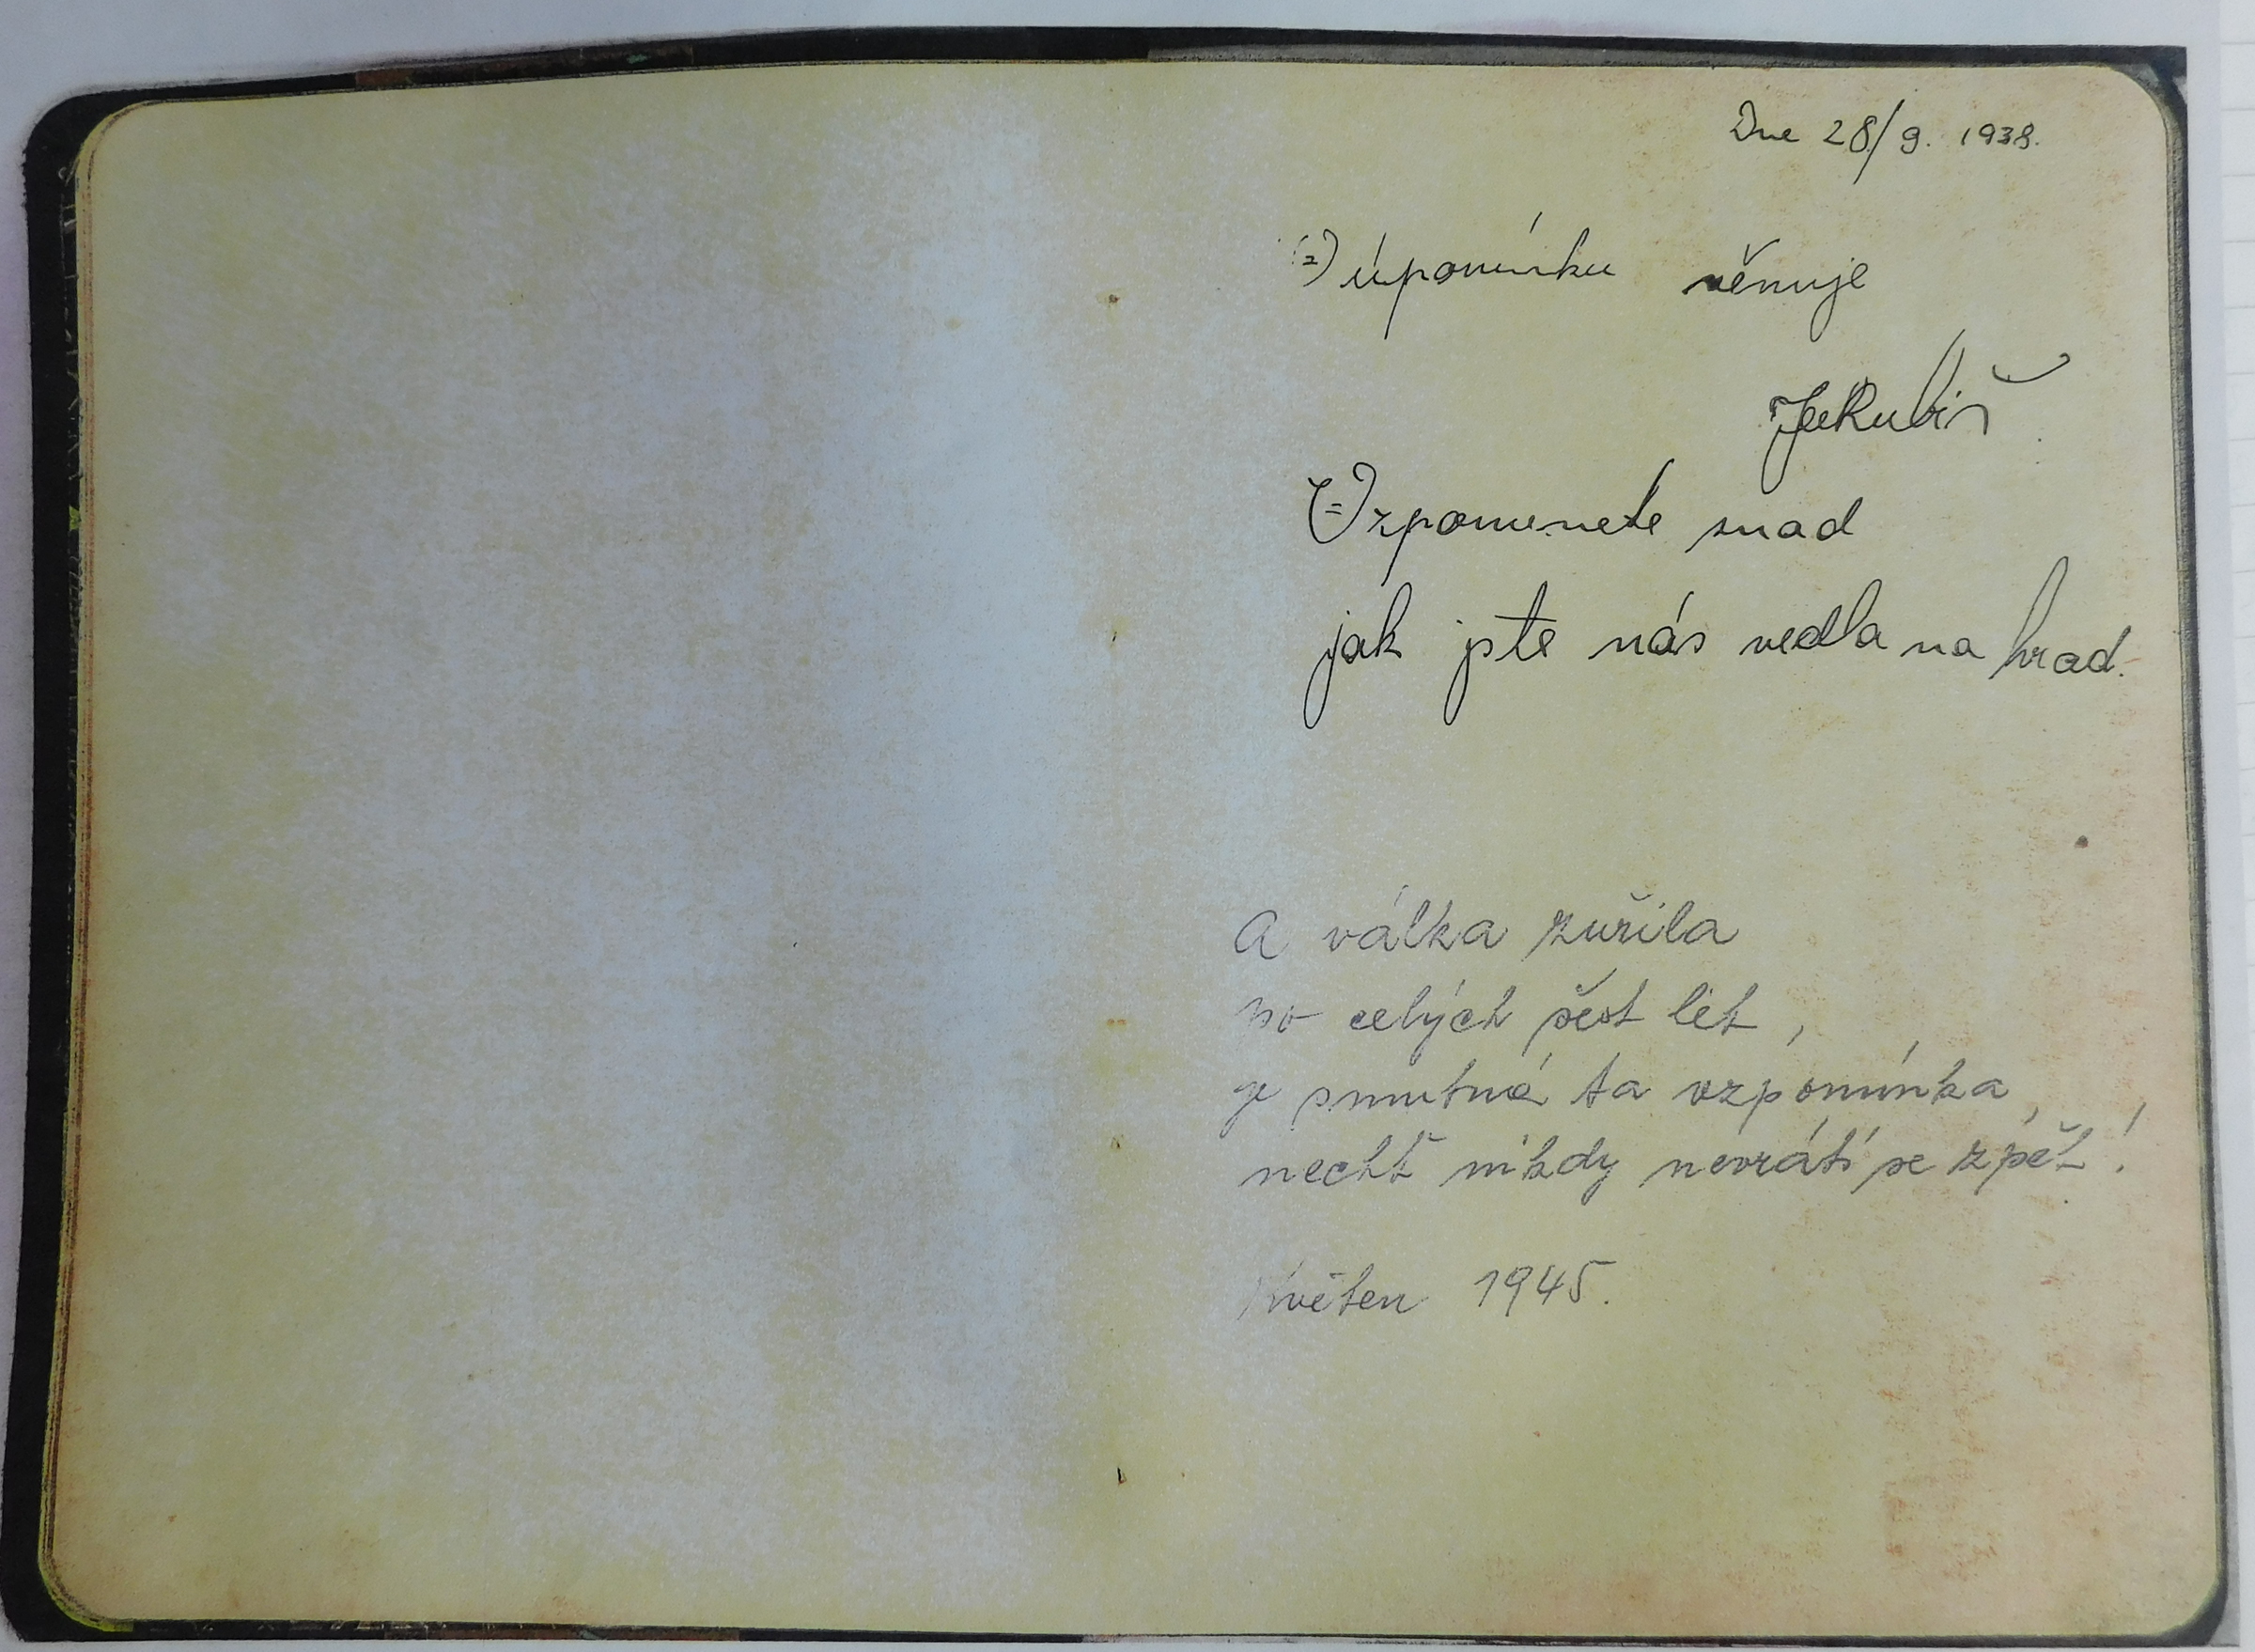 Dne 28/9. 1938.
V úpomínku věnuje
Vzpomenete snad
jak jste nás vedla na hrad.
A válka zuřila
po celých šest let,
je smutná ta vzpomínka,
nechť nikdy nevrátí se zpět!
Květen 1945.